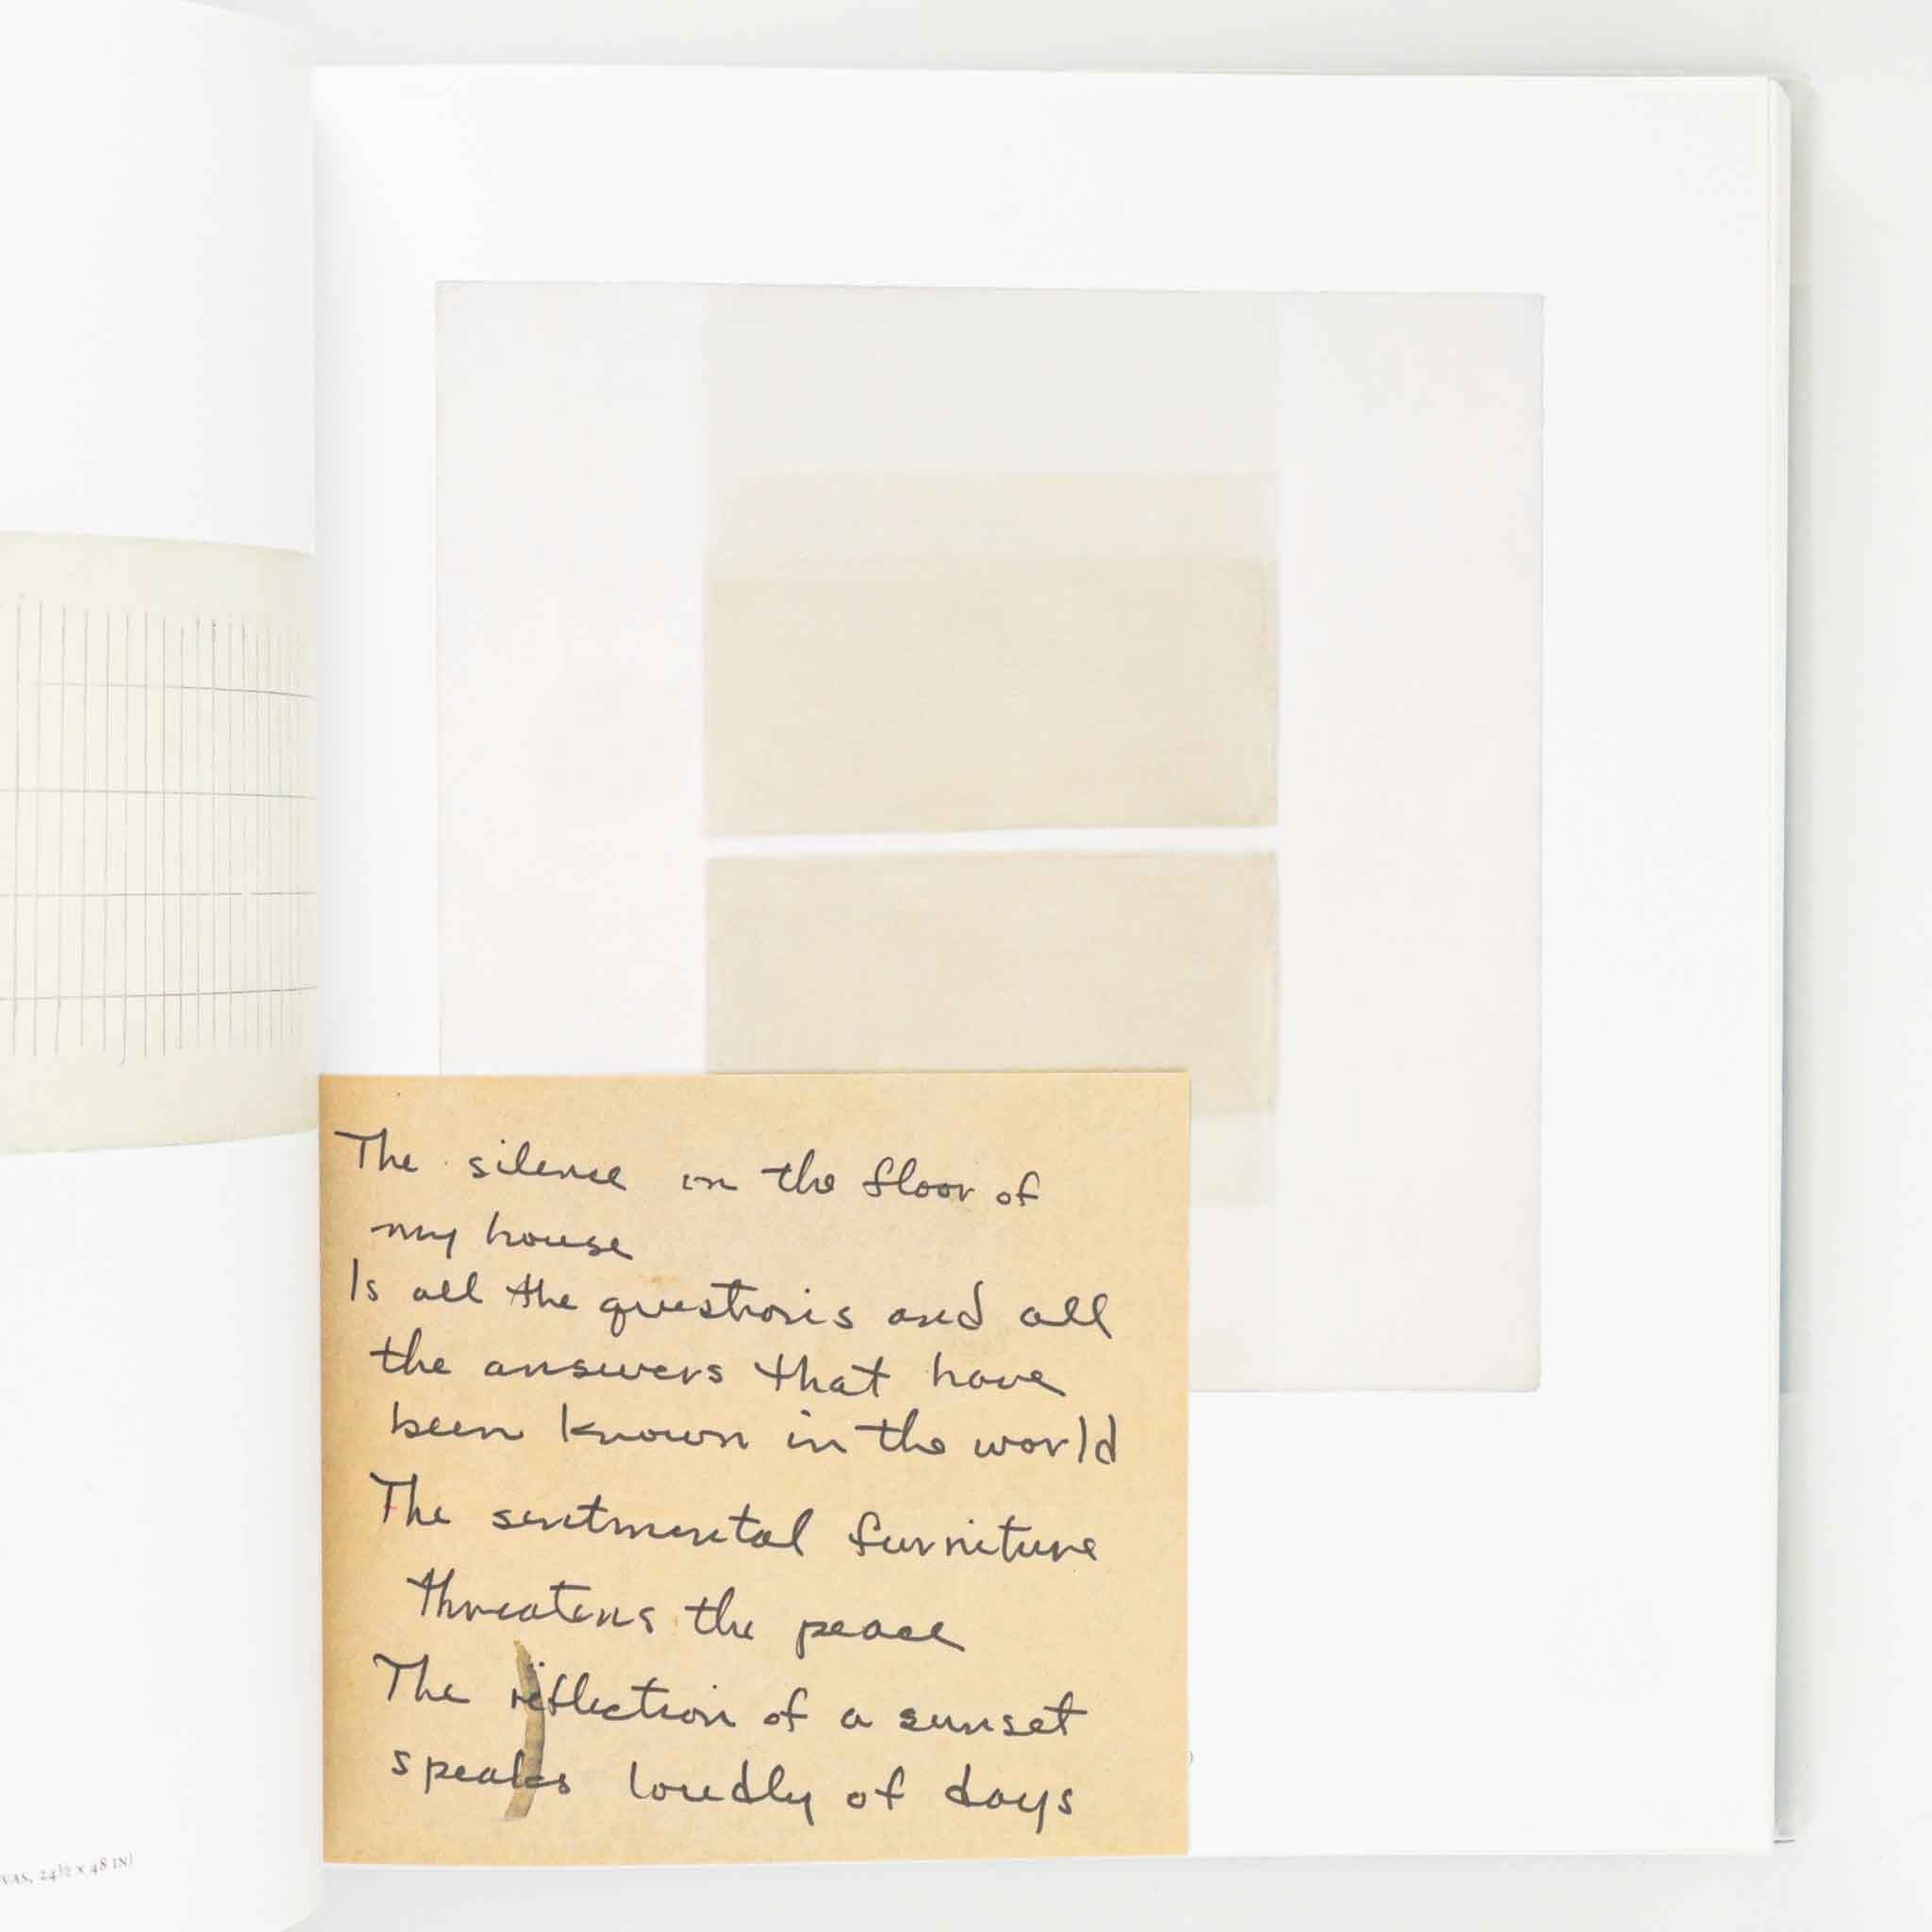 The silence in the floor of
my house
Is all the questions and all
the answers that have
been known in the world
The sentimental furniture
threatens the peace
The reflection of a sunset
speaks loudly of days
VAS, 24½ × 48 IN)
)